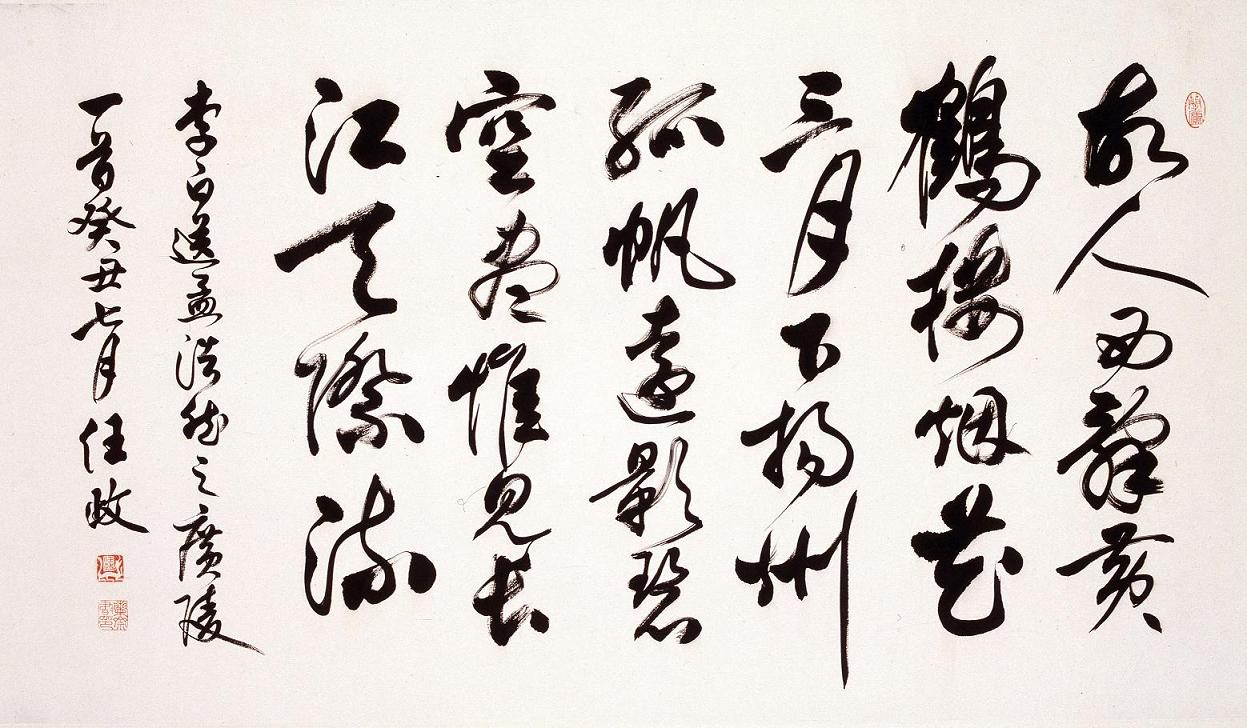 故人西辭黃
鶴樓烟花
三月下揚州
孤帆遠影碧
空盡惟見長
江天際流
李白送孟浩然之廣陵
一首癸丑七月任政